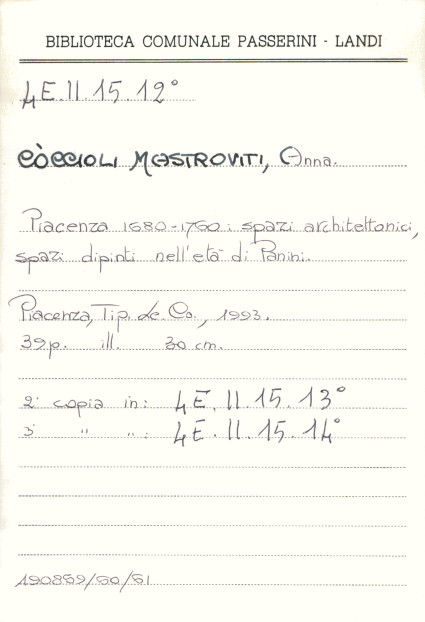 BIBLIOTECA COMUNALE PASSERINI - LANDI
4E.II.15.12°
CÒCCIOLI MASTROVITI, Anna.
Piacenza 1680-1760: spazi architettonici,
spazi dipinti nell'età di Panini.
Piacenza, Tip. Le. Co., 1993.
39p. ill. 30 cm.
2ª copia in: 4E.II.15.13°
3ª " ": 4E.II.15.14°
190859/60/61